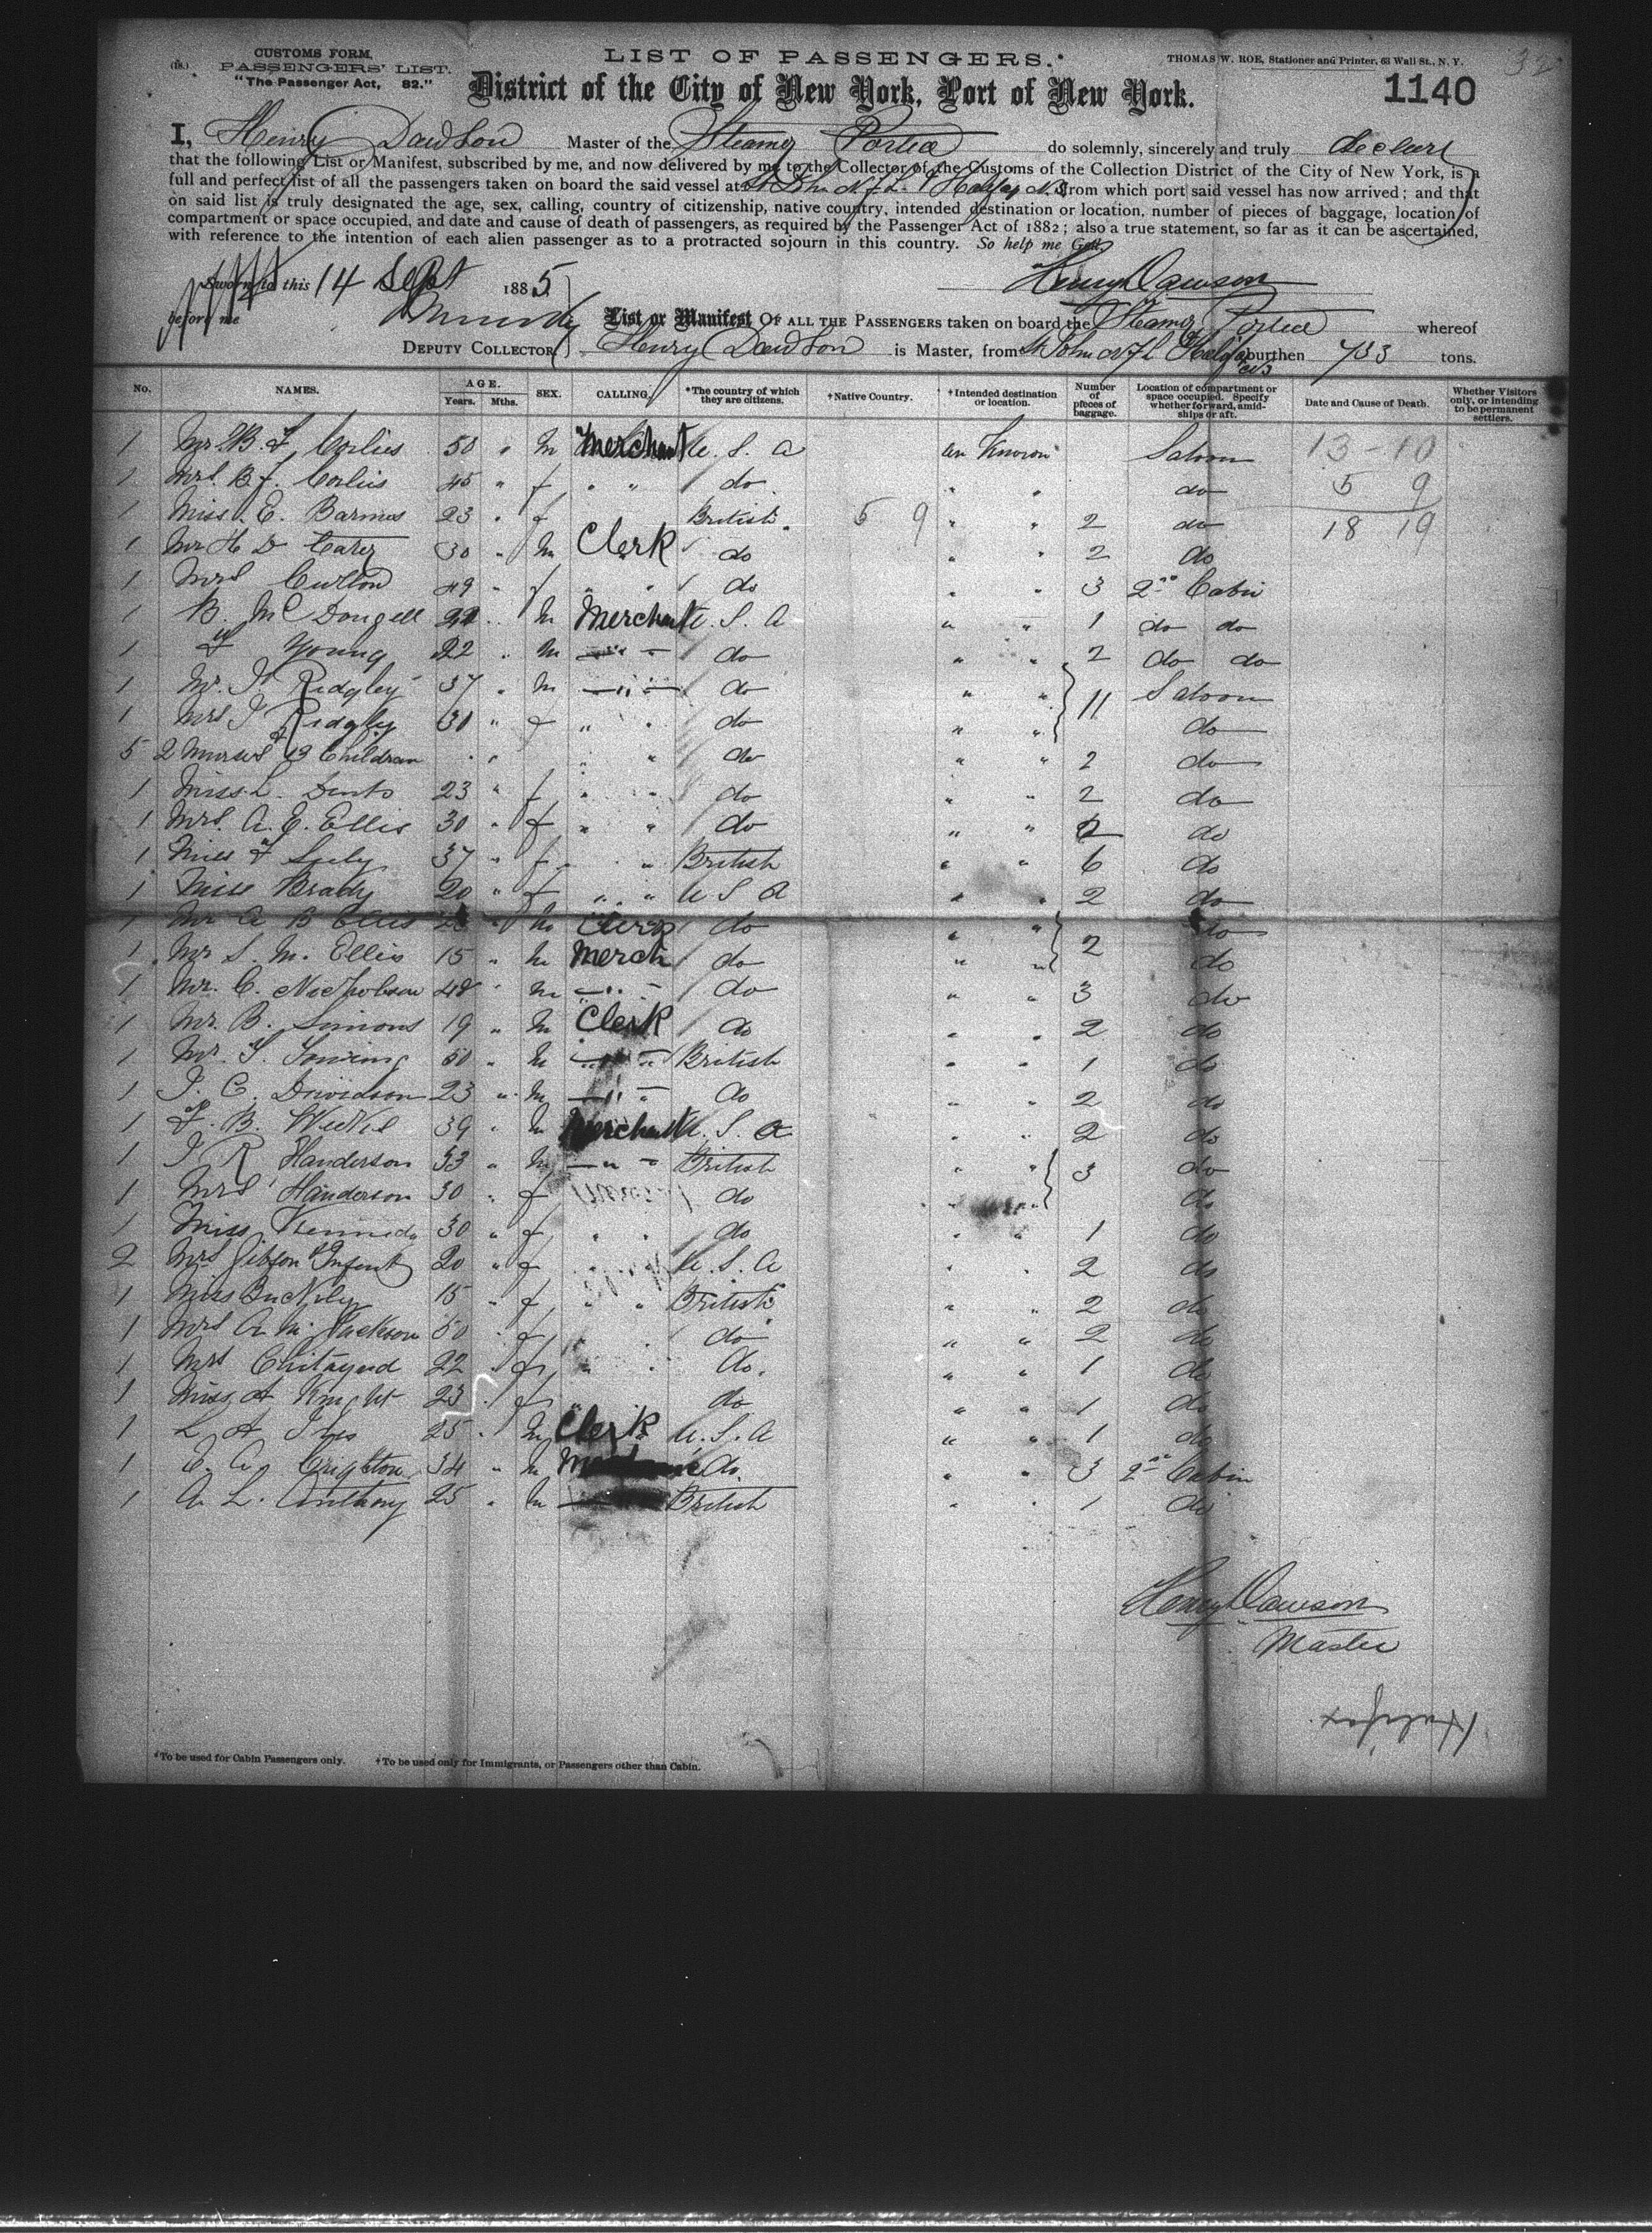 CUSTOMS FORM.
PASSENGERS' LIST.
"The Passenger Act, 82."
LIST OF PASSENGERS.
THOMAS W. ROE, Stationer and Printer, 63 Wall St., N. Y.
32
District of the City of New York, Port of New York.
1140
I, Henry Dawson Master of the Steamer Portia do solemnly, sincerely and truly declare
that the following List or Manifest, subscribed by me, and now delivered by me to the Collector of the Customs of the Collection District of the City of New York, is a
full and perfect list of all the passengers taken on board the said vessel at St John N.F.L. & Halifax N.S. from which port said vessel has now arrived; and that
on said list is truly designated the age, sex, calling, country of citizenship, native country, intended destination or location, number of pieces of baggage, location of
compartment or space occupied, and date and cause of death of passengers, as required by the Passenger Act of 1882; also a true statement, so far as it can be ascertained,
with reference to the intention of each alien passenger as to a protracted sojourn in this country. So help me God.
Sworn to this 14 Sept 1885 Henry Dawson
before me
List or Manifest OF ALL THE PASSENGERS taken on board the Steamer Portia whereof
DEPUTY COLLECTOR. Henry Dawson is Master, from St John N F L Halifax burthen 733 tons.
No. NAMES. AGE. Years. Mths. SEX. CALLING. *The country of which they are citizens. †Native Country. †Intended destination or location. Number of pieces of baggage. Location of compartment or space occupied. Specify whether forward, amidships or aft. Date and Cause of Death. Whether Visitors only, or intending to be permanent settlers.
1 Mr. B. F. Corlies 50 " M Merchant U. S. A un Known Saloon 13-10
1 Mrs. B. F. Corlies 45 " f " " do " " do 5 9
1 Miss. E. 23 " f British 5 9 " " 2 do 18 19
1 Mr H D Carey 30 " M Clerk do " " 2 do
1 Mrs 49 " f " " do " " 3 2nd Cabin
1 B. McDougell " M Merchant U. S. A " " 1 do do
1 F Young 22 " M " do " " 2 do do
1 Mr. Ridgley 37 " M " do " " 11 Saloon
1 Mrs Ridgley 30 " f " " do " " do
5 2 Nurses & 3 Children " " " " do " " 2 do
1 Miss L. 23 " f " " do " " 2 do
1 Mrs. A. E. Ellis 30 " f " " do " " 2 do
1 Miss F Seely 37 " f " " British " " 6 do
1 Miss Brady 20 " f " " U S A " " 2 do
1 Mr A B Ellis M Clerk do " " 2 do
1 Mr S. M. Ellis 15 " M Merch do " " do
1 Mr. C. Nicholson 48 " M " do " " 3 do
1 Mr. B. Simons 19 " M Clerk do " " 2 do
1 Mr. 50 " M " British " " 1 do
1 J. C. Davidson 23 " M " do " " 2 do
1 F. B. 39 " M Merchant U. S. A " " 2 do
1 J R Handerson 53 " M " British " " 3 do
1 Mrs Handerson 30 " f do " " do
1 Miss Kennedy 30 " f " " do " " 1 do
2 Mrs Gibson & Infant 20 " f U. S. A " " 2 do
1 Miss 15 " f " " British " " 2 do
1 Mrs A. M. Jackson 50 " f " " do " " 2 do
1 Mrs 22 " f " " do. " " 1 do
1 Miss A Knight 23 " f " do " " 1 do
1 L A Ives 25 " M Clerk U. S. A " " 1 do
1 E. A. Crighton 34 " M do. " " 3 2nd Cabin
1 A L. Anthony 25 " M British " " 1 do
Henry Dawson
Master
Halifax
*To be used for Cabin Passengers only. †To be used only for Immigrants, or Passengers other than Cabin.